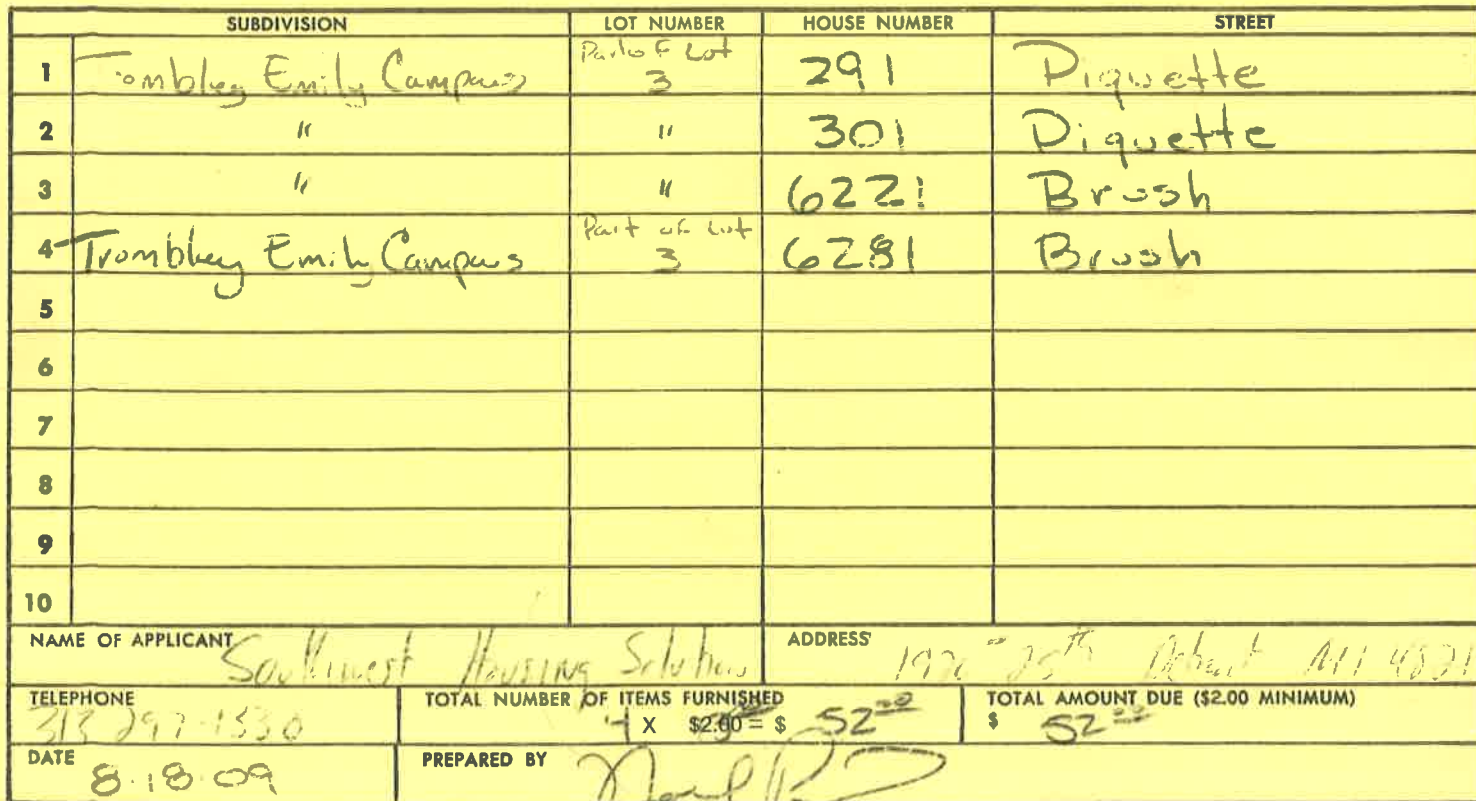 SUBDIVISION LOT NUMBER HOUSE NUMBER STREET
1 Trombley Emily Campaus Part of Lot 3 291 Piquette
2 " " 301 Piquette
3 " " 6221 Brush
4 Trombley Emily Campaus Part of Lot 3 6281 Brush
5
6
7
8
9
10
NAME OF APPLICANT Southwest Housing Solutions ADDRESS Detroit MI
TELEPHONE TOTAL NUMBER OF ITEMS FURNISHED TOTAL AMOUNT DUE ($2.00 MINIMUM)
313 297-1330 4 X $2.00 = $ 52 00 $ 52 00
DATE PREPARED BY
8.18.09